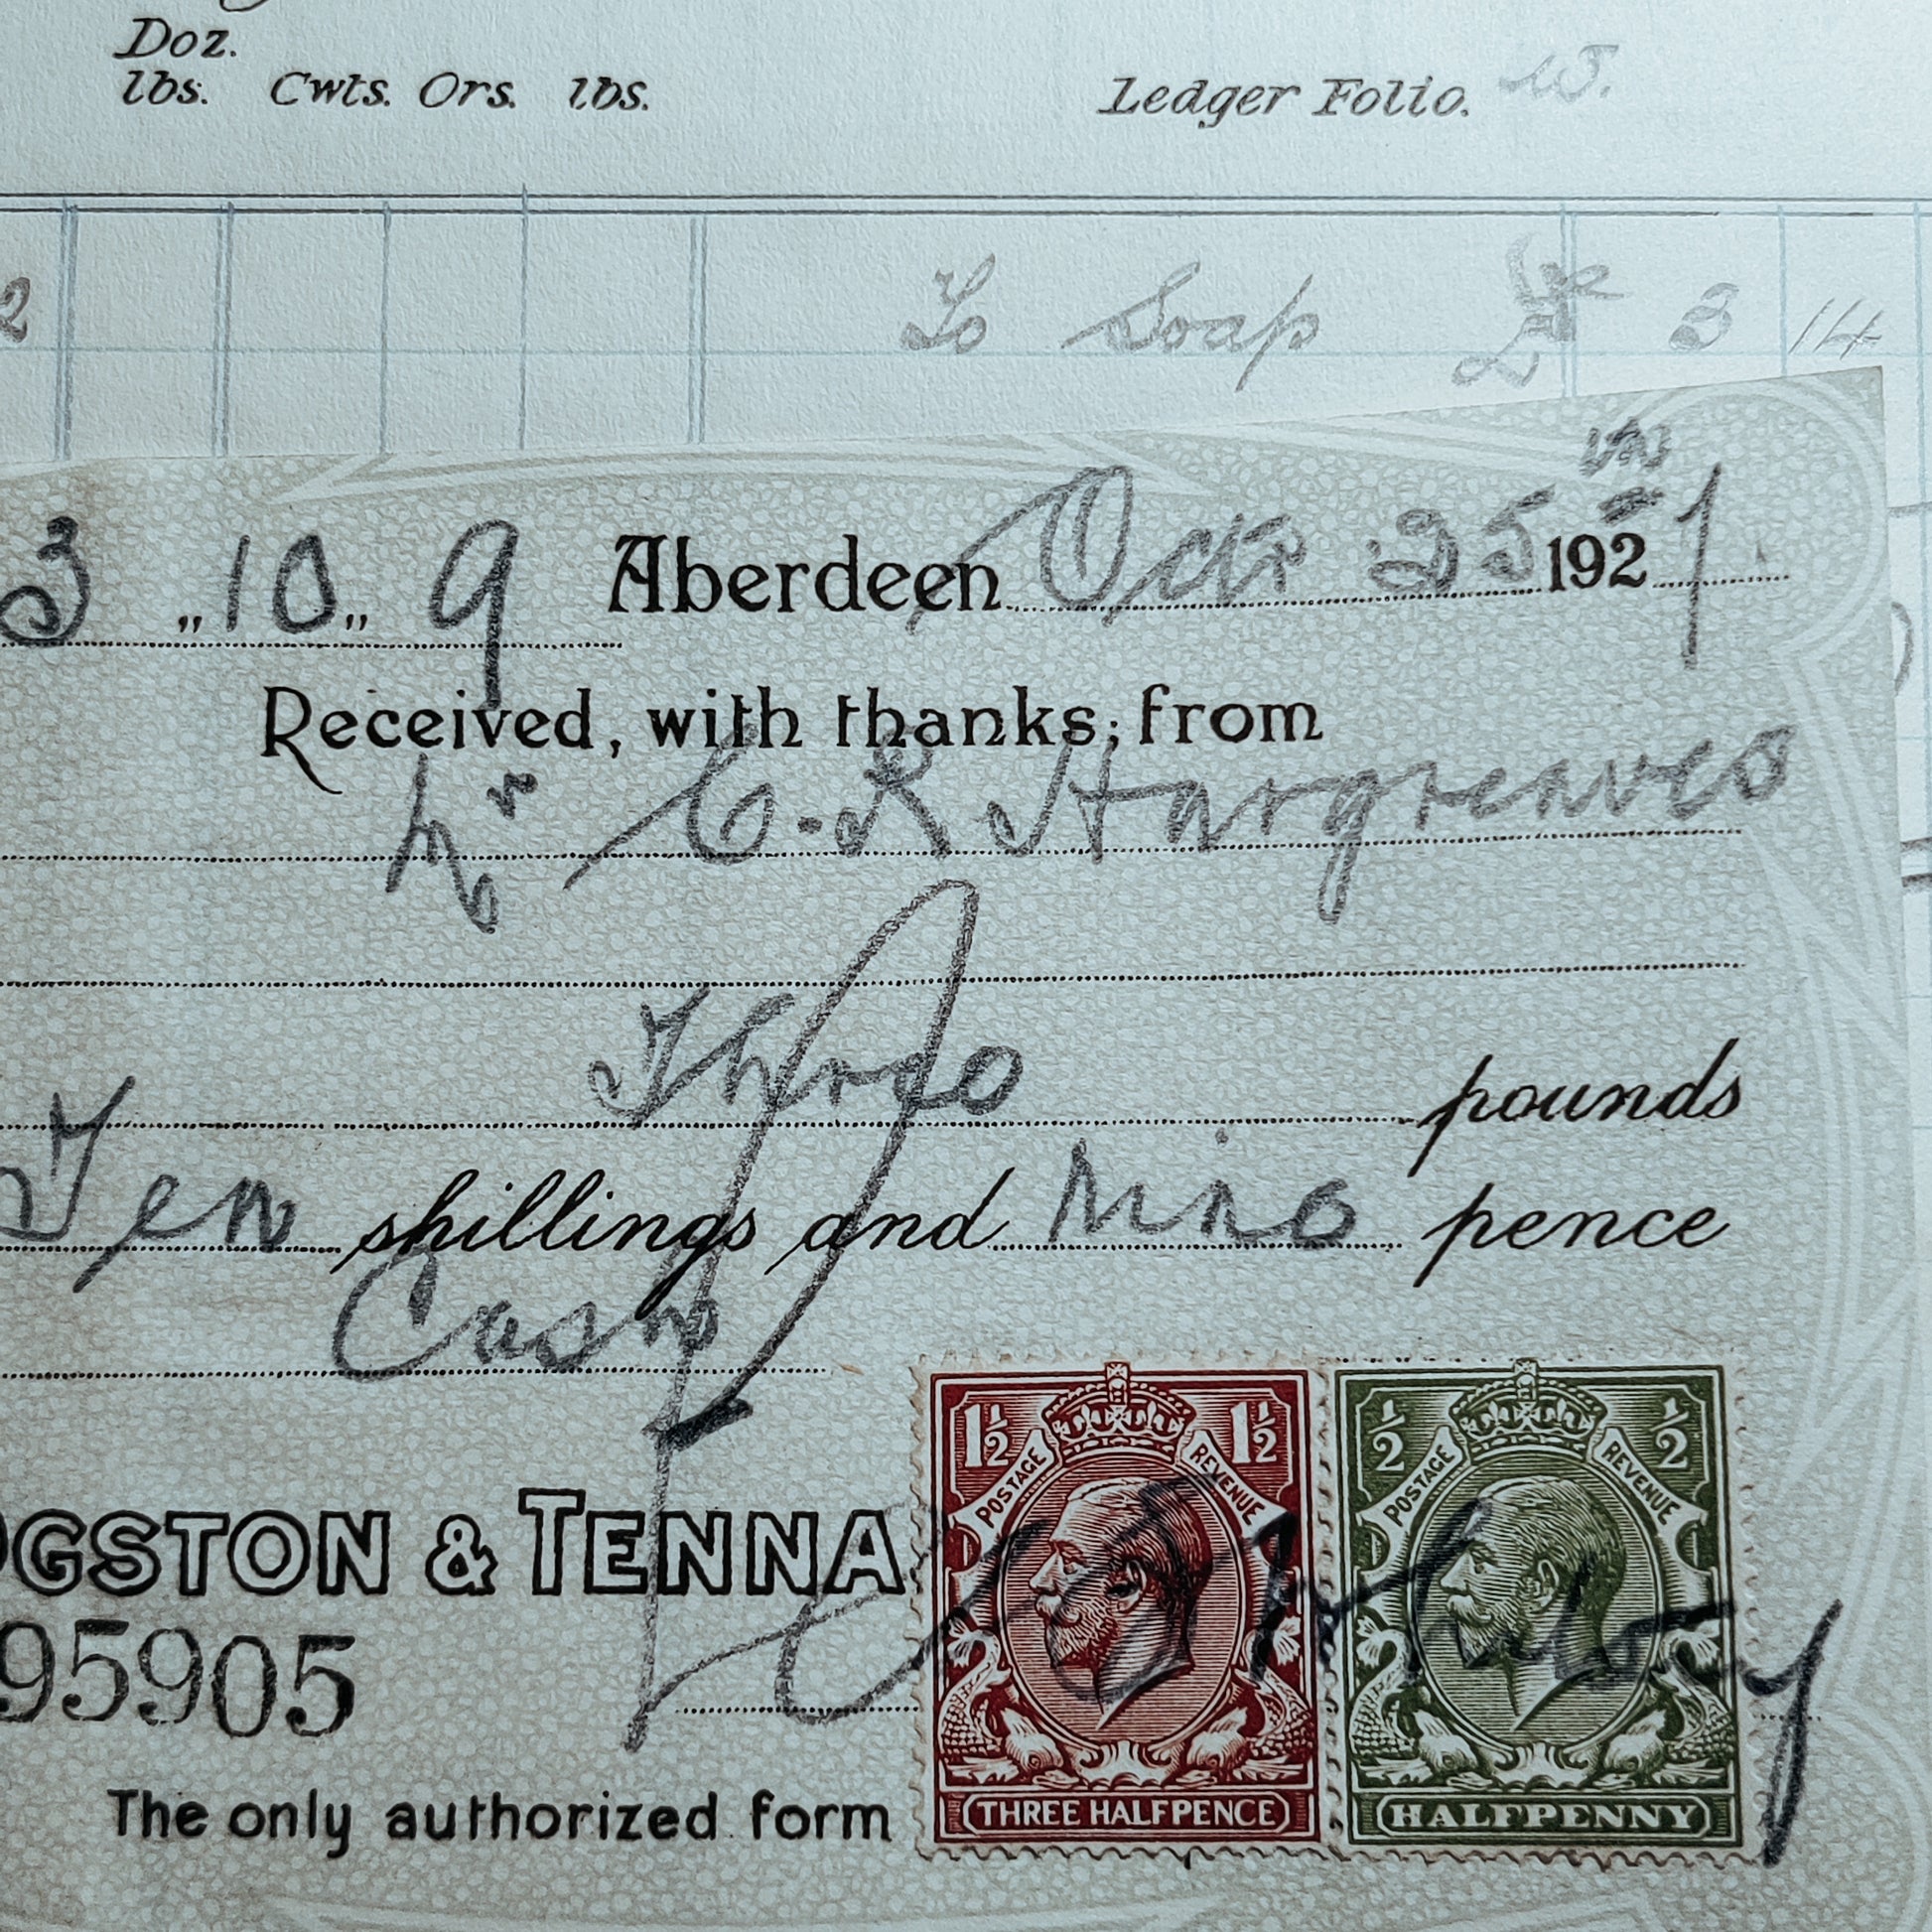 Doz.
lbs. Cwts. Ors. lbs. Ledger Folio.
2 To Soap 3 14
3 „ 10 „ 9 Aberdeen Oct 25 1921
Received, with thanks; from
Mr C. R Hargreaves
Three pounds
Ten shillings and Nine pence
Cash
GSTON & TENNA
95905
The only authorized form
1½ POSTAGE REVENUE 1½
THREE HALFPENCE
½ POSTAGE REVENUE ½
HALFPENNY